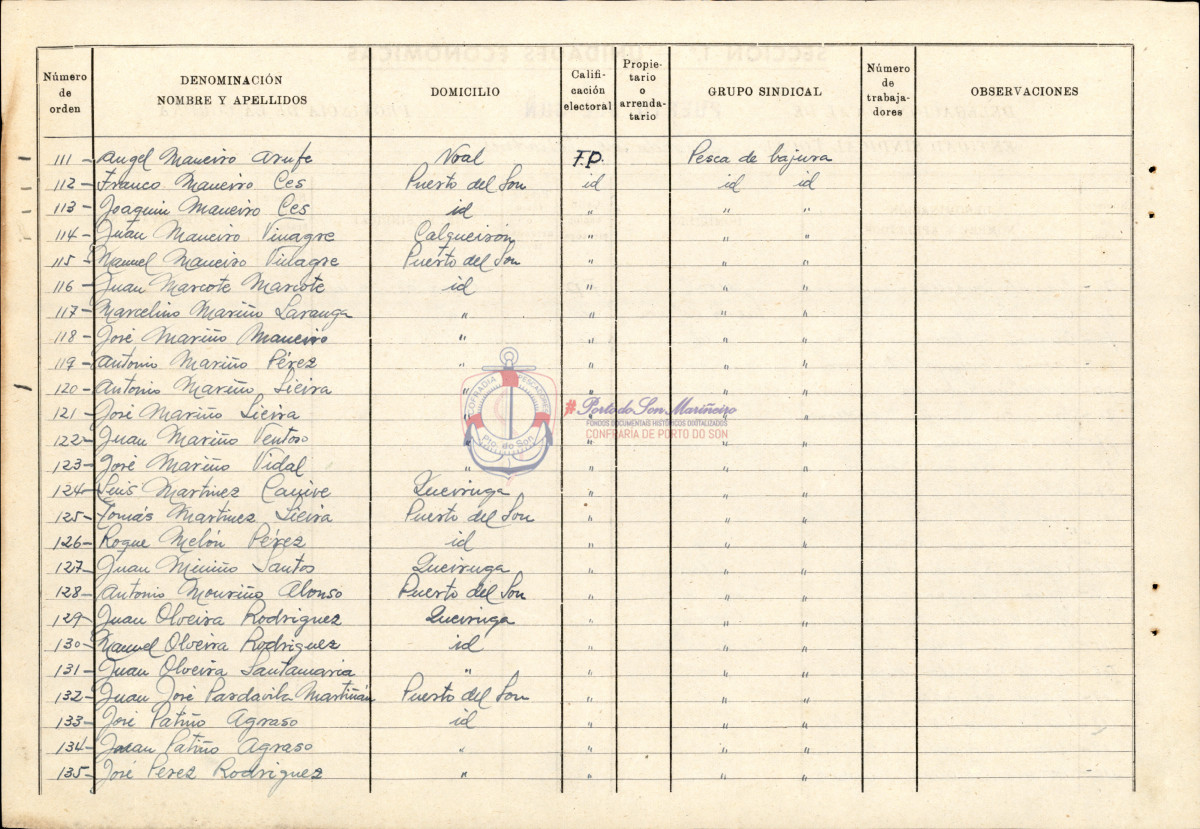 Número de orden | DENOMINACIÓN NOMBRE Y APELLIDOS | DOMICILIO | Califi-cación electoral | Propie-tario o arrenda-tario | GRUPO SINDICAL | Número de trabaja-dores | OBSERVACIONES
111 - Angel Maneiro Arufe Noal F.P. Pesca de bajura
112 - Franco Maneiro Ces Puerto del Son id id id
113 - Joaquin Maneiro Ces id " " "
114 - Juan Maneiro Vinagre Calqueiron " " "
115 - Manuel Maneiro Vilagre Puerto del Son " " "
116 - Juan Marcote Marcote id " " "
117 - Marcelino Mariño Laranga " " " "
118 - José Mariño Maneiro " " " "
119 - Antonio Mariño Pérez " " " "
120 - Antonio Mariño Lieira " " " "
121 - José Mariño Lieira " " " "
122 - Juan Mariño Ventoso " " " "
123 - José Mariño Vidal " " " "
124 - Luis Martinez Caurive Queiruga " " "
125 - Tomás Martinez Lieira Puerto del Son " " "
126 - Roque Melón Pérez id " " "
127 - Juan Miniño Santos Queiruga " " "
128 - Antonio Mouriño Alonso Puerto del Son " " "
129 - Juan Olveira Rodriguez Queiruga " " "
130 - Manuel Olveira Rodriguez id " " "
131 - Juan Olveira Santamaria " " " "
132 - Juan José Pardavila Martiñán Puerto del Son " " "
133 - José Patiño Agraso id " " "
134 - Juan Patiño Agraso " " " "
135 - José Pérez Rodriguez " " " "
COFRADIA PESCADORES
Pto. do Son
#Porto do Son Mariñeiro
FONDOS DOCUMENTAIS HISTÓRICOS DIGITALIZADOS
CONFRARÍA DE PORTO DO SON